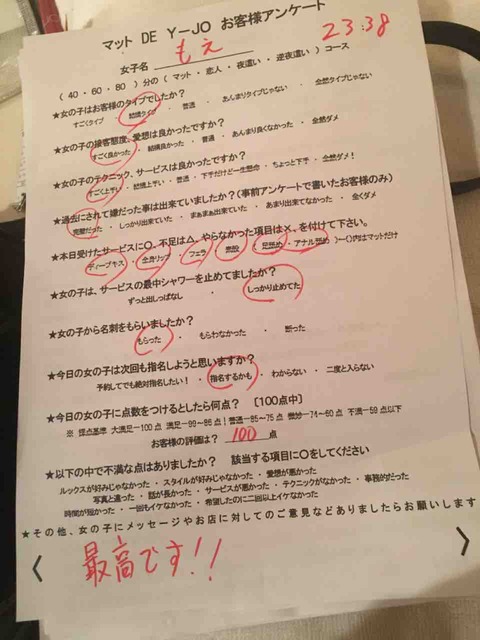 マット DE Y-JO お客様アンケート
23:38
女子名 もえ
( 40・60・80 ) 分の ( マット ・ 恋人 ・ 夜這い ・ 逆夜這い ) コース
★女の子はお客様のタイプでしたか?
すごくタイプ ・ 結構タイプ ・ 普通 ・ あんまりタイプじゃない ・ 全然タイプじゃない
★女の子の接客態度、愛想は良かったですか?
すごく良かった ・ 結構良かった ・ 普通 ・ あんまり良くなかった ・ 全然ダメ
★女の子のテクニック、サービスは良かったですか?
すごく上手い ・ 結構上手い ・ 普通 ・ 下手だけど一生懸命 ・ ちょっと下手 ・ 全然ダメ!
★過去にされて嫌だった事は出来ていましたか?(事前アンケートで書いたお客様のみ)
完璧だった ・ しっかり出来ていた ・ まぁまぁ出来ていた ・ あまり出来てなかった ・ 全くダメ
★本日受けたサービスに〇、不足は△、やらなかった項目は×、を付けて下さい。
ディープキス ・ 全身リップ ・ フェラ ・ ・ 足舐め ・ アナル舐め )ー()内はマットだけ
★女の子は、サービスの最中シャワーを止めてましたか?
ずっと出しっぱなし ・ しっかり止めてた
★女の子から名刺をもらいましたか?
もらった ・ もらわなかった ・ 断った
★今日の女の子は次回も指名しようと思いますか?
予約してでも絶対指名したい! ・ 指名するかも ・ わからない ・ 二度と入らない
★今日の女の子に点数をつけるとしたら何点? [100点中]
※ 採点基準 大満足ー100点 満足ー99~86点! 普通ー85~75点 微妙ー74~60点 不満ー59点以下
お客様の評価は? 100 点
★以下の中で不満な点はありましたか? 該当する項目に〇をしてください
ルックスが好みじゃなかった ・ スタイルが好みじゃなかった ・ 愛想が悪かった
写真と違った ・ 話が長かった ・ サービスが悪かった ・ テクニックがなかった ・ 事務的だった
時間が短かった ・ 一回もイケなかった ・ 希望したのに二回以上イケなかった
★その他、女の子にメッセージやお店に対してのご意見などありましたらお願いします
最高です!!